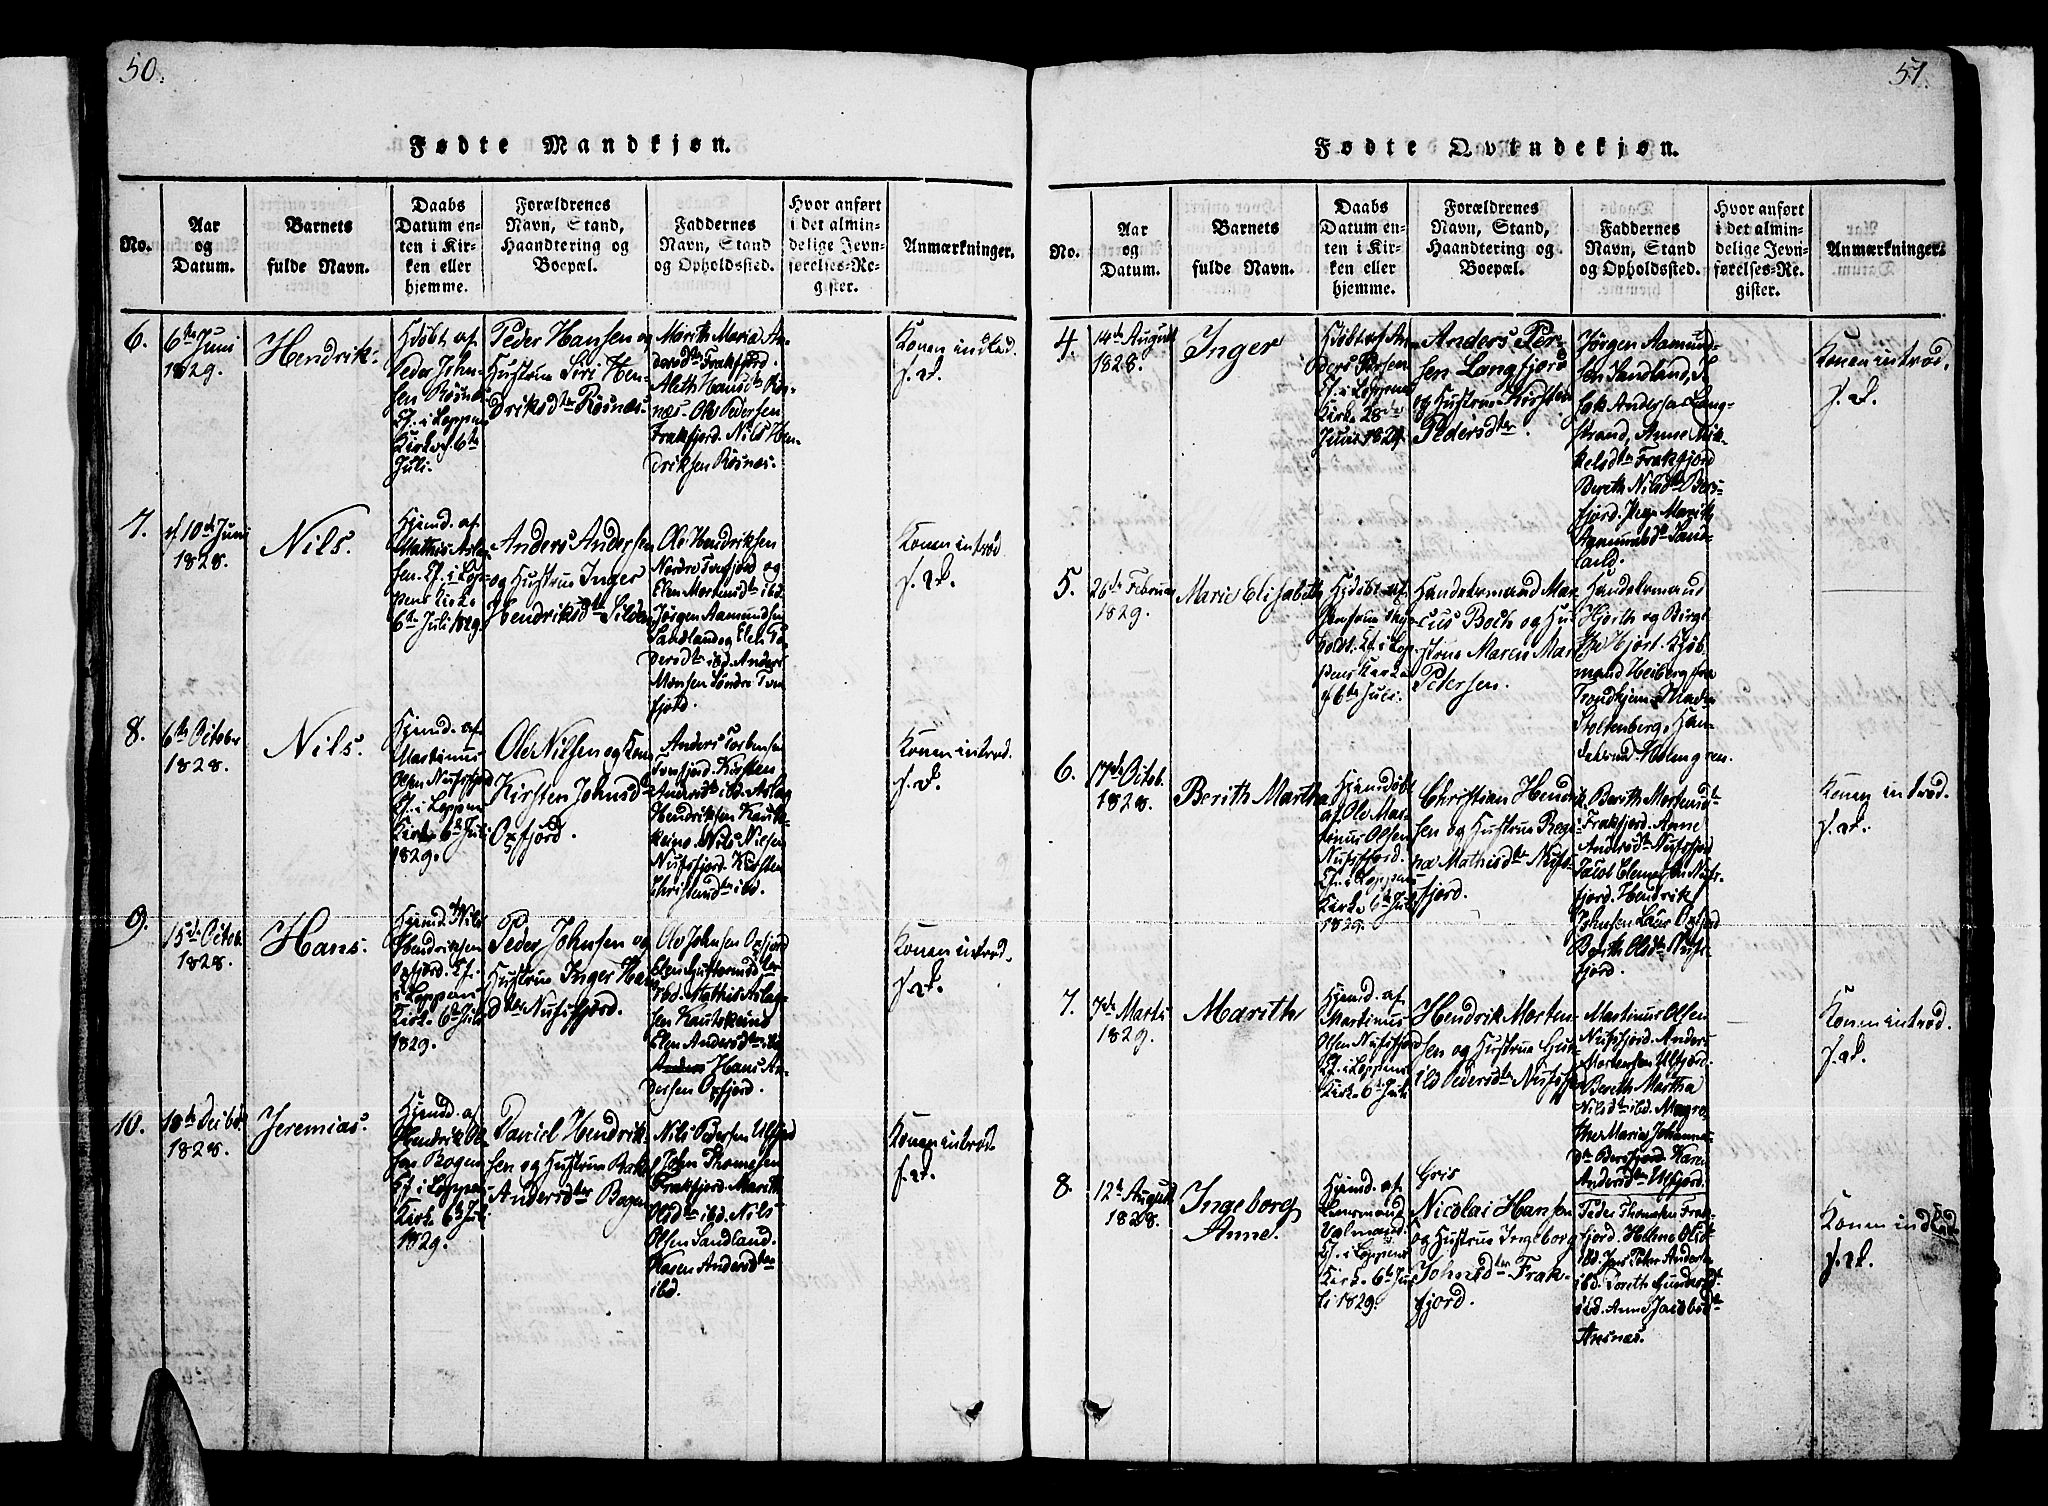 50.
Fødte Mandkjøn.
No.
Aar
og
Datum.
Barnets
fulde Navn.
Daabs
Datum en-
ten i Kir-
ken eller
hjemme.
Forældrenes
Navn, Stand,
Haandtering og
Boepæl.
Faddernes
Navn, Stand
og Opholdssted.
Hvor anført
i det almin-
delige Jevn-
førelses-Re-
gister.
Anmærkninger.
6.
6te Juni
1829.
Hendrik.
Peder John-
sen
Kirke 6te
Juli.
Peder Hansen og
Hustrue Siri Hen-
driksdter
Marith Maria An-
Frakfjord.
Ole Pedersen
Frakfjord. Nils Hen-
driksen
Konen indled.
7.
10de Juni
1828.
Nils.
Hjemd. af
Mathis Asla-
sen. Cf. i Lop-
pens Kirke
6te Juli 1829.
Anders Andersen
og Hustrue Inger
Hendriksdter Silden
Ole Hendriksen
Nordre Tverfjord og
Elen Mortensdter ibd.
Jørgen Aamundsen
Sandland og Elen Pe-
dersdter ibd. Anders
Monsen Søndre Tver-
fjord.
Konen introd.
8.
6te October
1828.
Nils.
Hjemd. af
Martinus
Olsen Nufsfjord
Cf. i Loppens
Kirke 6te Juli
1829.
Ole Nilsen og Kone
Kirsten Johnsd
Oxfjord.
Anders Torbensen
Tverfjord. Kirsten
Andersdtr ibd. Aslag
Hendriksen Kaut-
keino. Nils Nilsen
Nufsfjord. Kirsten
ibd.
Konen introd.
9.
15de Octob.
1828.
Hans.
Hjemd. af Nils
Hendriksen
Oxfjord. Cf.
i Loppens
Kirke 6te Juli
1829.
Peder Johnsen og
Hustrue Inger Han
dter Nufsfjord.
Ole Johnsen Oxfjord
ibd. Mathis Aslag-
sen Kautokeino
Elen Andersdter ibd.
Hans An-
dersen Oxfjord.
Konen introd.
10.
18de Decbr.
1828.
Jeremias.
Hjemd. af
Hendrik Ol-
sen Bogen
Cf. i Loppens
Kirke 6te Juli
1829.
Daniel Hendrik-
sen og Hustrue
Andersdter Bogen
Nils Pedersen Ulfjord
John Thomesen
Frakfjord. Marith
Olsdter ibd. Nils
Olsen Sandland.
Karen Andersdter
ibd.
Konen introd.
51.
Fødte Qvindekjøn.
No.
Aar
og
Datum.
Barnets
fulde Navn.
Daabs
Datum en-
ten i Kir-
ken eller
hjemme.
Forældrenes
Navn, Stand,
Haandtering og
Boepæl.
Faddernes
Navn, Stand
og Opholdssted.
Hvor anført
i det almin-
delige Jevn-
førelses-Re-
gister.
Anmærkninger.
4.
14de August
1828.
Inger
An-
ders Persen
Cf. i Loppens
Kirke 28de
Juni 1829
Anders Per-
sen Langfjord
og Hustrue Kirsten
Pedersdter.
Jørgen Aamund-
sen Sandland,
Andersen Lang-
strand, Anne Mik-
kelsdter Frakfjord
Berith Nilsdtr Bers-
fjord. Marith
Aamundsdtr Sand-
land.
Konen introd.
5.
26de Februar
1829.
Marie Elisabeth
Cf. i Lop-
pens Kirke
6te Juli.
Handelsmand Mar-
cus Boch og Hu-
strue Maren Mar
Petersen.
Handelsmand
Hjorth og
Hjort. Kjøb-
mand Heiberg fra
Trondhjem.
Stoltenberg, Han-
Holmgren.
6.
17de Octob.
1828.
Berith Martha
Hjemdøbt
af Ole Mar-
tinus Olsen
Nufsfjord.
Cf. i Loppens
Kirke 6te Juli
1829.
Christian Hendrik-
sen og Hustrue Regi-
næ Mathisdter Nufs-
fjord.
Berith Mortensdtr
Frakfjord. Anne
Andersdtr Nufsfjord
Jacob Clemetsen Nufs-
fjord. Hendrik
Johnsen Oxfjord
Berith Olsdtr Nufs-
fjord.
Konen introd.
7.
7de Marts
1829.
Marith
Hjemd. af
Martinus
Olsen Nufsfjord
Cf. i Loppens
Kirke 6te Juli
Hendrik Morten-
sen og Hustrue
Pedersdter Nufsfjord
Martinus Olsen
Nufsfjord. Anders
Mortensen Ulfjord.
Berith Martha
Nilsdtr ibd. Magre-
the Maria Johanne-
dtr Bersfjord. Karen
Andersdtr Ulfjord.
Konen introd.
8.
12te August
1828.
Ingeborg
Anne.
Hjemd. af
Lensmand
Cf. i Loppens
Kirke 6te Ju-
li 1829.
Gris
Nicolai Hansen
og Hustrue Ingeborg
Johnsdter Frak-
fjord.
Peder Thomesen Frak-
fjord. Helene Olsdtr
ibd. Jens Peter Anders
ibd. Dorith
ibd. Anne Jacobsdtr
Konen indled